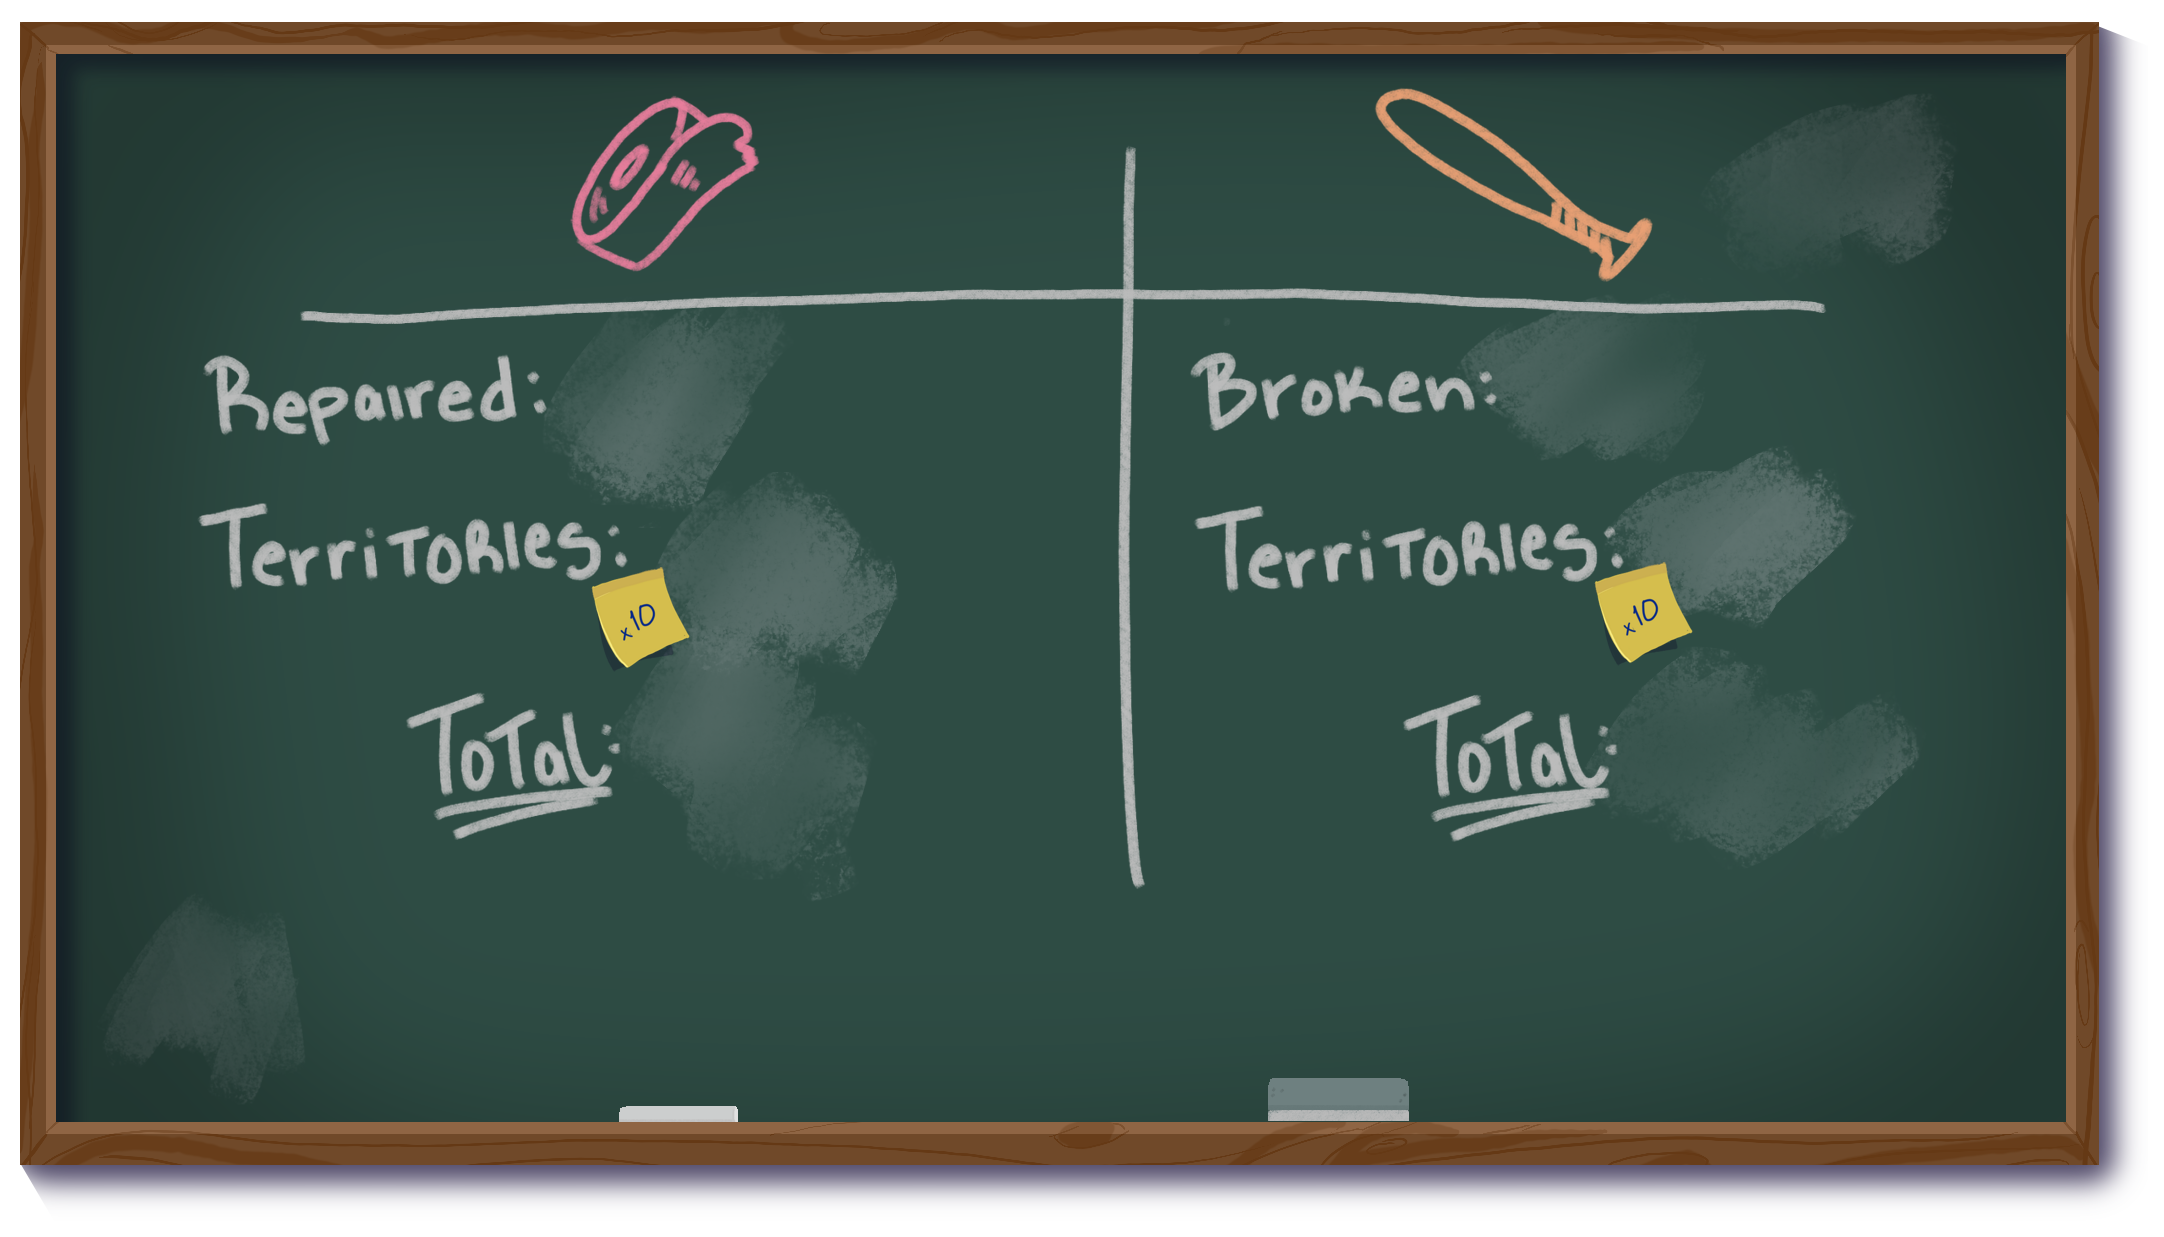 Repaired:
Territories:
x10
Total:
Broken:
Territories:
x10
Total: